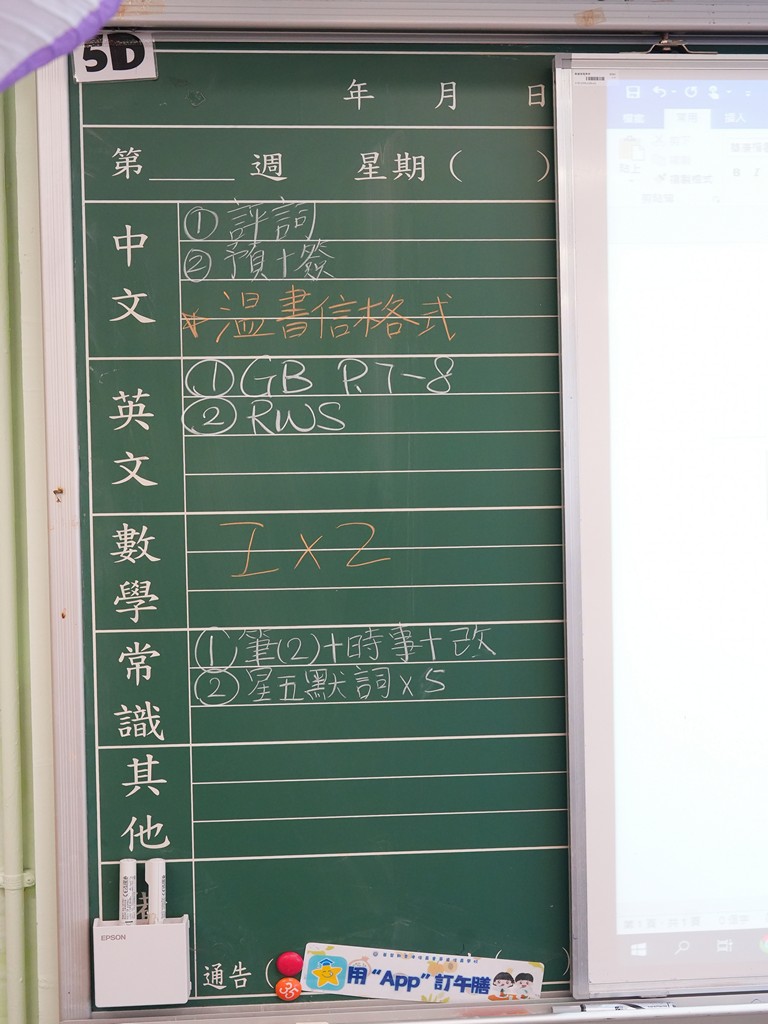 5D
年 月 日
第____週 星期( )
中文
① 評詞
② 預+簽
*溫書信格式
英文
① GB P.7-8
② RWS
數學
I x 2
常識
① 筆(2)+時事+改
② 星五默詞 x 5
其他
EPSON
通告(
35
用“App”訂午膳
)